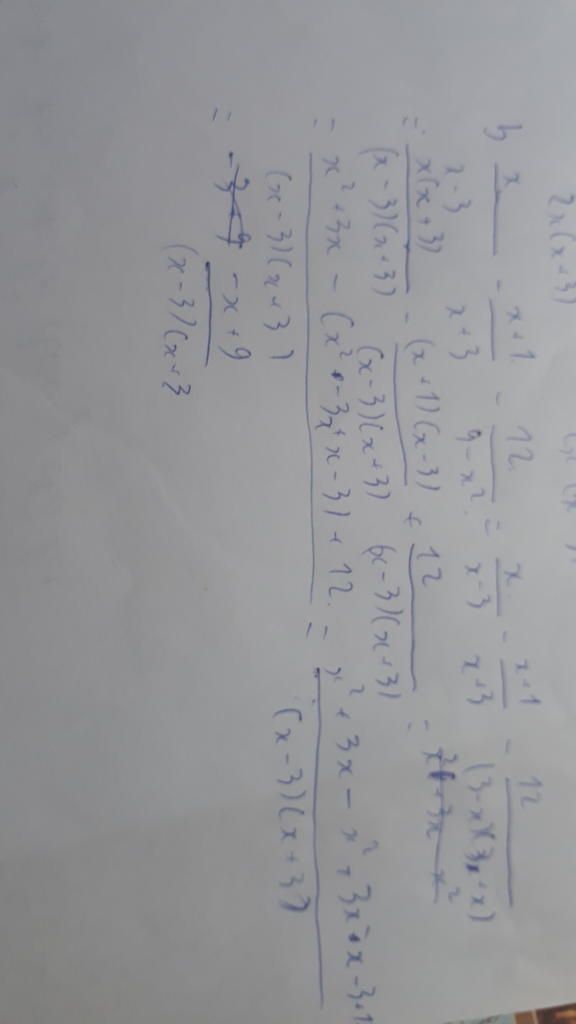 2x(x+3)
b x/(x-3) - (x+1)/(x+3) - 12/(9-x²) = x/(x-3) - (x+1)/(x+3) - 12/((3-x)(3+x))
= x(x+3)/((x-3)(x+3)) - (x+1)(x-3)/((x-3)(x+3)) + 12/((x-3)(x+3)) =
= (x²+3x-(x²-3x+x-3)+12)/((x-3)(x+3)) = (x²+3x-x²+3x-x-3+1)/((x-3)(x+3))
= -x+9/((x-3)(x+3